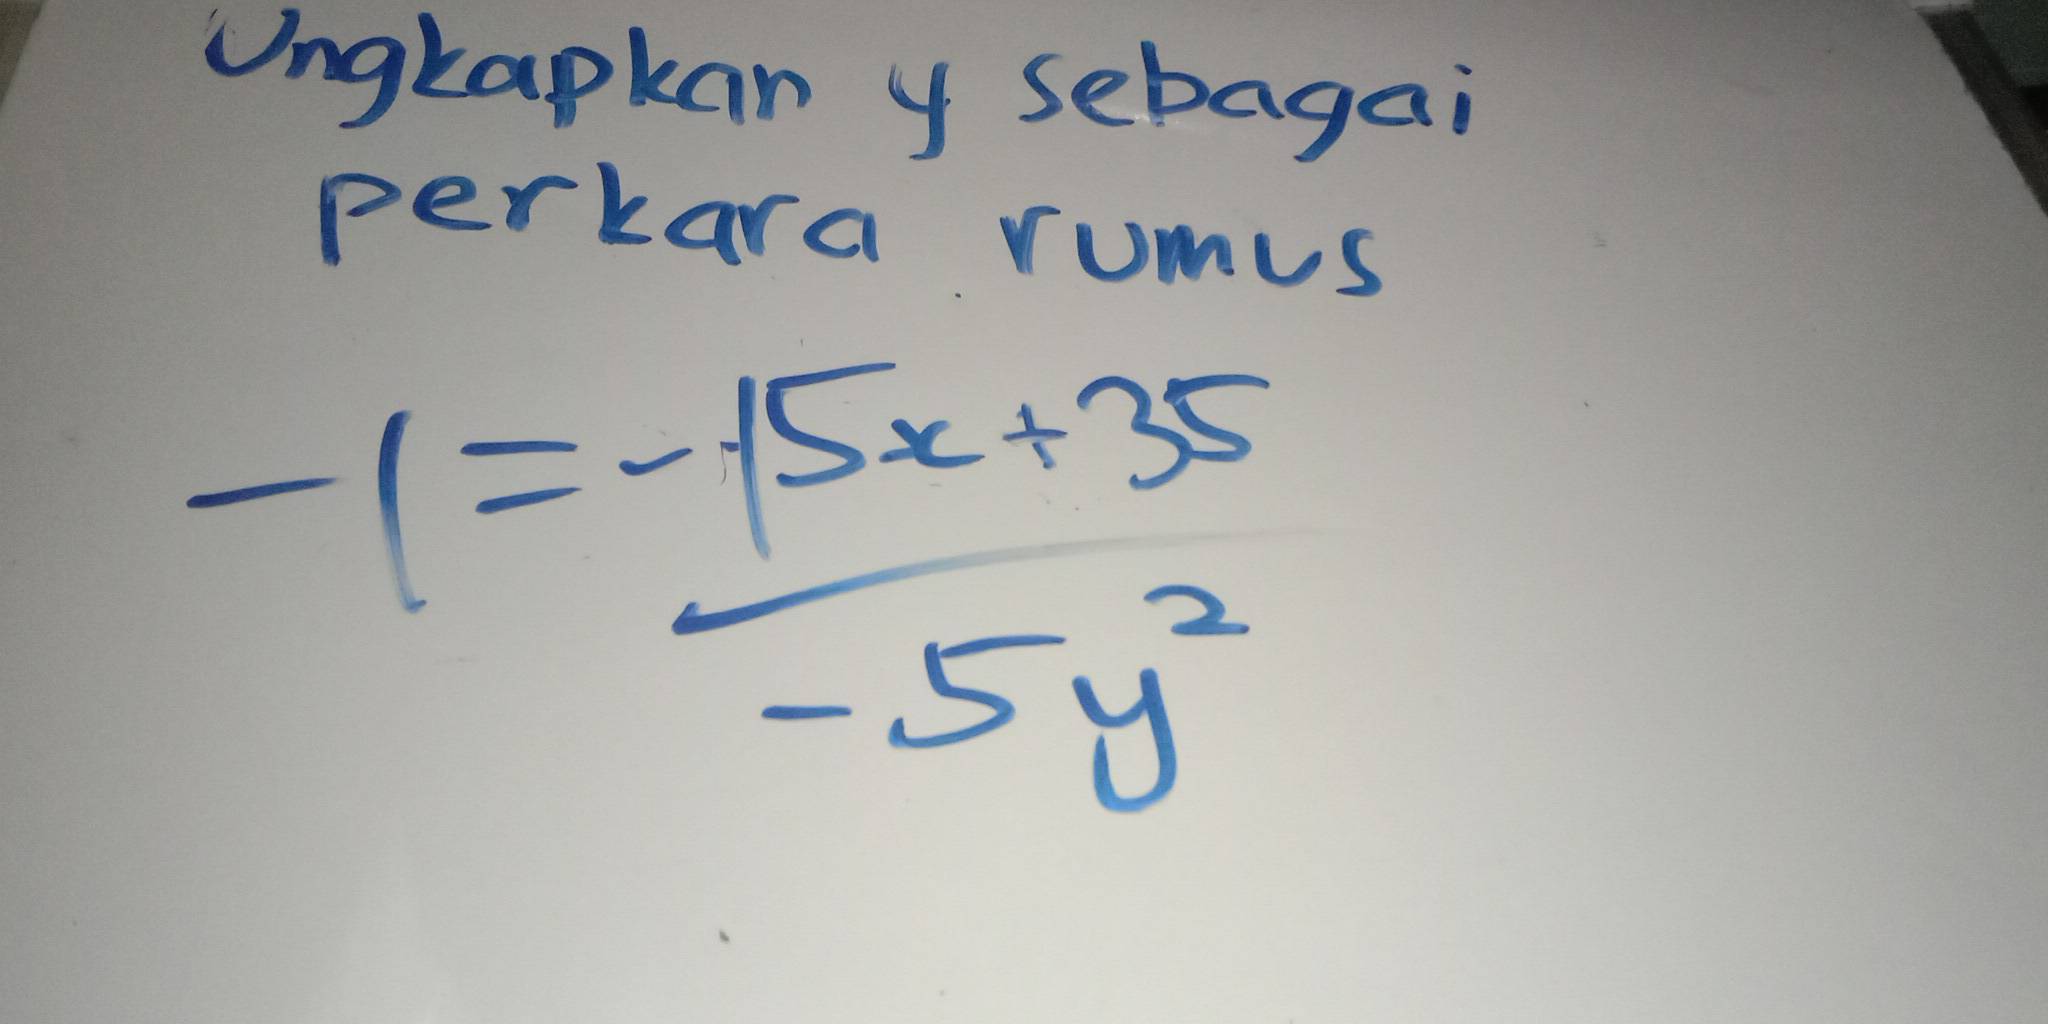 Ungkapkan y sebagai
perkara rumus
-1 = -15x+35
-5y²